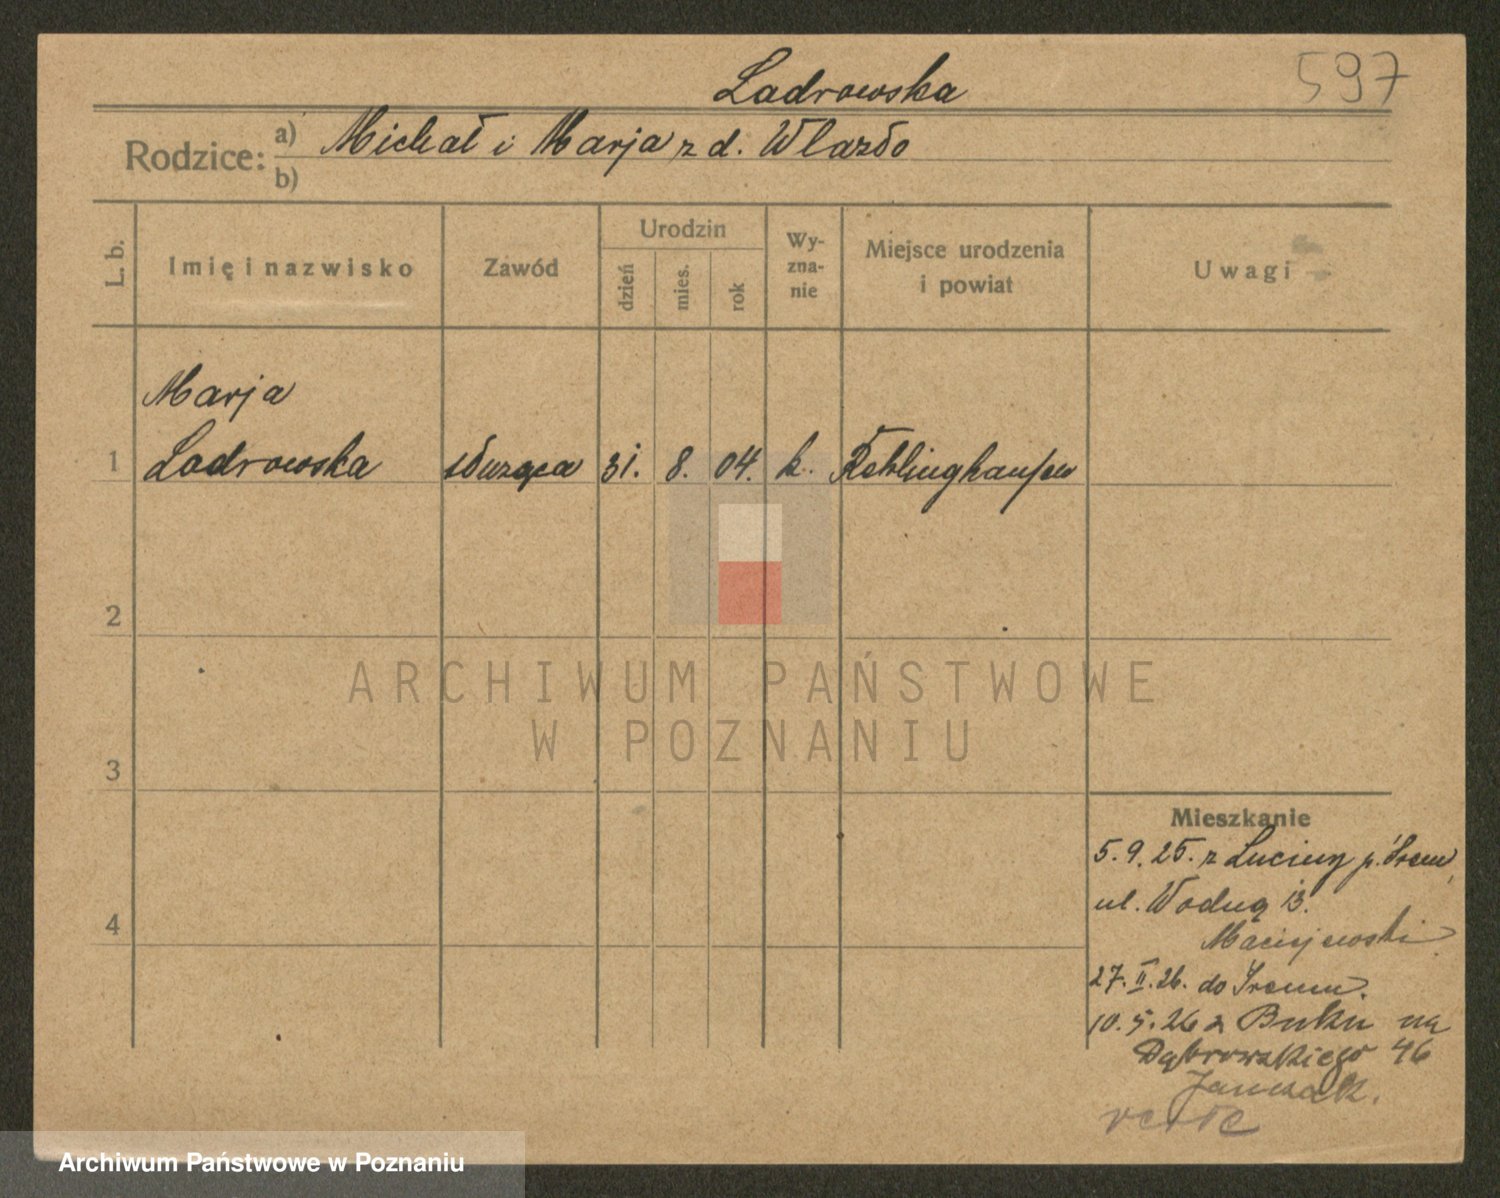 597
Ladrowska
Rodzice: a) Michał i Marja z d. Wlazło
b)
L. b.
Imię i nazwisko
Zawód
Urodzin
dzień
mies.
rok
Wy-
zna-
nie
Miejsce urodzenia
i powiat
Uwagi
Marja
1 Ladrowska służąca 31. 8. 04. k. Röhlinghausen
2
3
4
ARCHIWUM PAŃSTWOWE
W POZNANIU
Mieszkanie
5.9.25. z Luciny p. Śrem,
ul. Wodną 13.
Maciejewski
27.II.26. do Śremu.
10.5.26 z Buku na
Dąbrowskiego 46
Janczak.
Archiwum Państwowe w Poznaniu